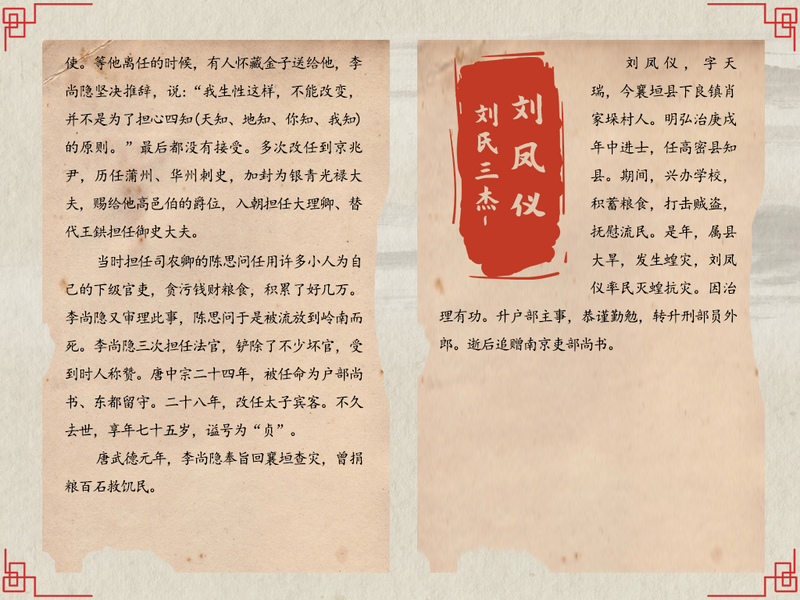 使。等他离任的时候，有人怀藏金子送给他，李
尚隐坚决推辞，说：“我生性这样，不能改变，
并不是为了担心四知(天知、地知、你知、我知)
的原则。”最后都没有接受。多次改任到京兆
尹，历任蒲州、华州刺史，加封为银青光禄大
夫，赐给他高邑伯的爵位，入朝担任大理卿、替
代王鉷担任御史大夫。
当时担任司农卿的陈思问任用许多小人为自
己的下级官吏，贪污钱财粮食，积累了好几万。
李尚隐又审理此事，陈思问于是被流放到岭南而
死。李尚隐三次担任法官，铲除了不少坏官，受
到时人称赞。唐中宗二十四年，被任命为户部尚
书、东都留守。二十八年，改任太子宾客。不久
去世，享年七十五岁，谥号为“贞”。
唐武德元年，李尚隐奉旨回襄垣查灾，曾捐
粮百石救饥民。
刘凤仪
刘氏三杰
刘凤仪，字天
瑞，今襄垣县下良镇肖
家垛村人。明弘治庚戌
年中进士，任高密县知
县。期间，兴办学校，
积蓄粮食，打击贼盗，
抚慰流民。是年，属县
大旱，发生蝗灾，刘凤
仪率民灭蝗抗灾。因治
理有功。升户部主事，恭谨勤勉，转升刑部员外
郎。逝后追赠南京吏部尚书。